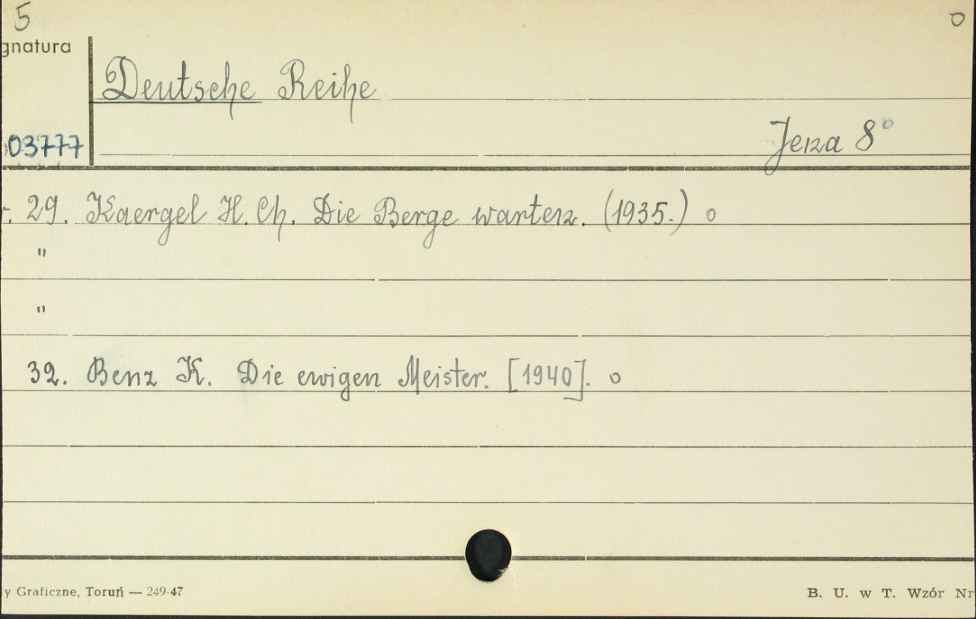 5 o
gnatura
Deutsche Reihe
03777 Jena 8°
r. 29. Kaergel H. Ch. Die Berge warten. (1935.) o
"
"
32. Benz K. Die ewigen Meister. [1940]. o
y Graficzne, Toruń — 249-47 B. U. w T. Wzór Nr